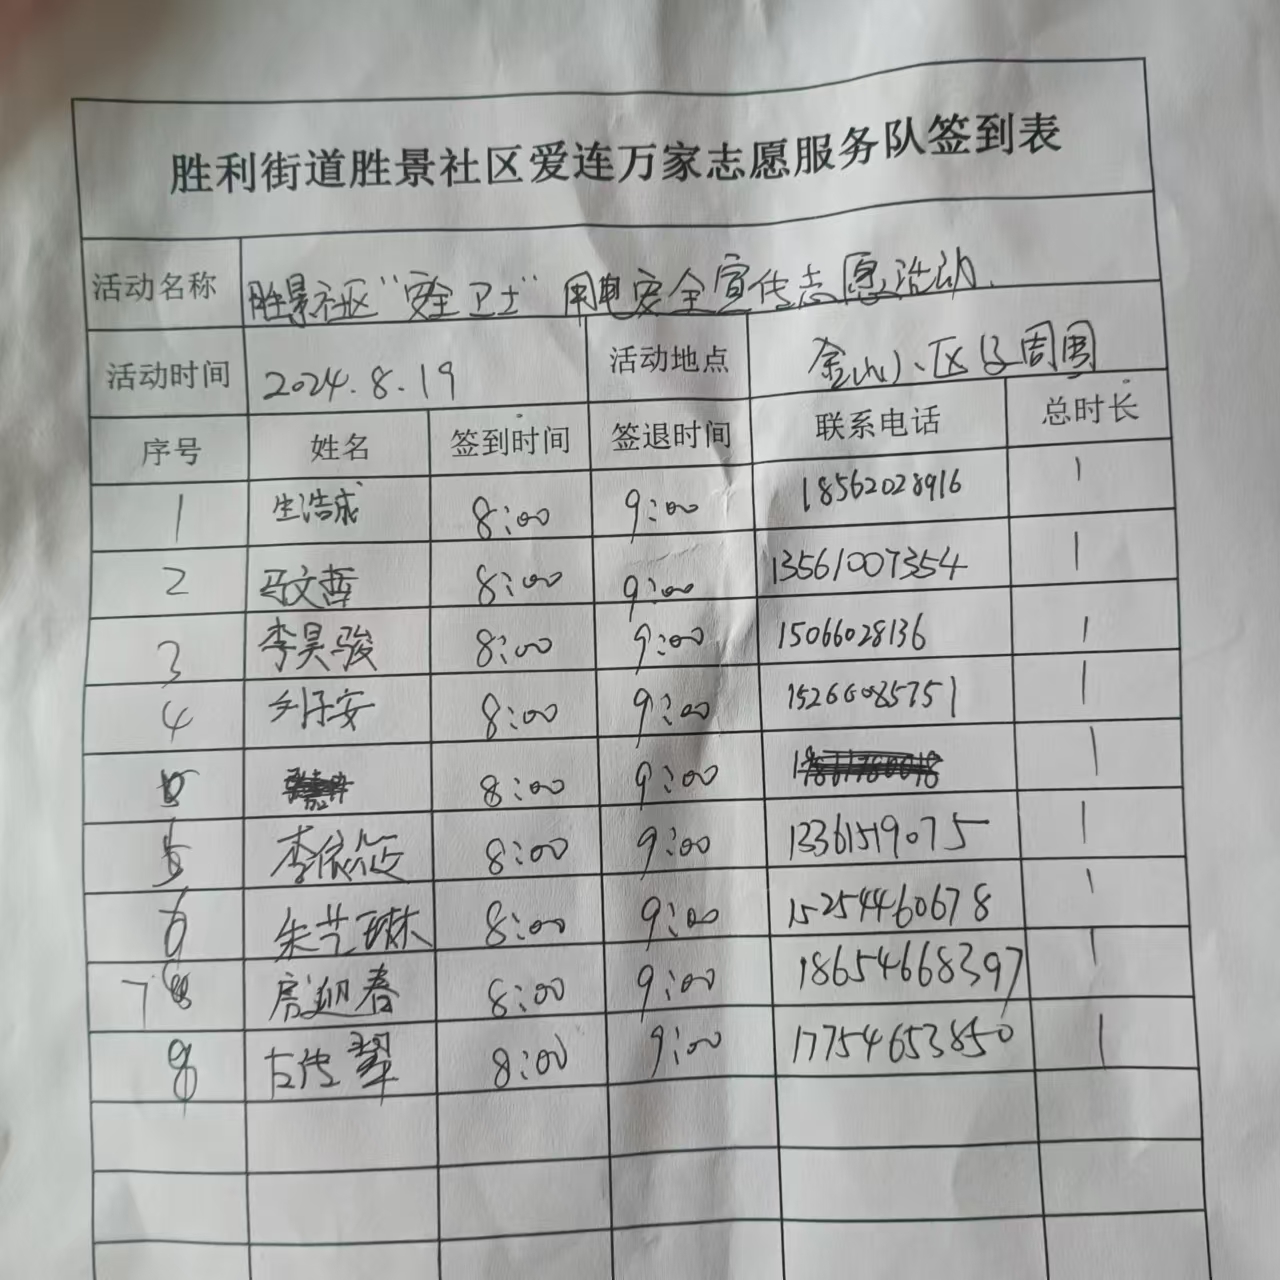 胜利街道胜景社区爱连万家志愿服务队签到表
活动名称 胜景社区“安全卫士”用电安全宣传志愿活动.
活动时间 2024.8.19 活动地点 金山小区及周围
序号 姓名 签到时间 签退时间 联系电话 总时长
1 生浩成 8:00 9:00 18562028916 1
2 马文哲 8:00 9:00 13561007354 1
3 李昊骏 8:00 9:00 15066028136 1
4 安 8:00 9:00 1
8:00 9:00 1
5 李依 8:00 9:00 13361519075 1
6 朱艺琳 8:00 9:00 15254460678 1
7 房迎春 8:00 9:00 18654668397 1
8 左传翠 8:00 9:00 17754653850 1